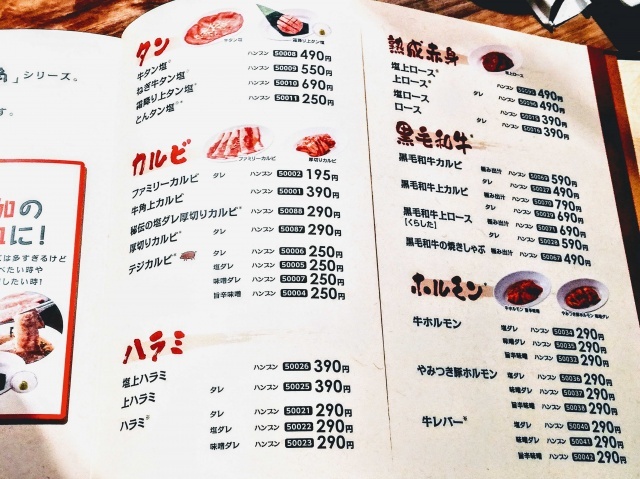 」シリーズ。
す。
の
に!
は多すぎるけど
べたい時や
したい時!
タン
牛タン塩
霜降り上タン塩
牛タン塩 ハンブン 50008 490円
ねぎ牛タン塩 ハンブン 50009 550円
霜降り上タン塩 ハンブン 50010 690円
とんタン塩 ハンブン 50011 250円
カルビ
ファミリーカルビ
厚切りカルビ
ファミリーカルビ タレ ハンブン 50002 195円
牛角上カルビ ハンブン 50001 390円
秘伝の塩ダレ厚切りカルビ ハンブン 50088 290円
厚切りカルビ タレ ハンブン 50087 290円
テジカルビ タレ ハンブン 50006 250円
塩ダレ ハンブン 50005 250円
味噌ダレ ハンブン 50007 250円
旨辛味噌 ハンブン 50004 250円
ハラミ
塩上ハラミ ハンブン 50026 390円
上ハラミ タレ ハンブン 50025 390円
ハラミ※ タレ ハンブン 50021 290円
塩ダレ ハンブン 50022 290円
味噌ダレ ハンブン 50023 290円
熟成赤身
塩上ロース
塩上ロース ハンブン 490円
上ロース タレ ハンブン 490円
塩ロース ハンブン 390円
ロース タレ ハンブン 390円
黒毛和牛
黒毛和牛カルビ 極み出汁 ハンブン 50069 590円
タレ ハンブン 490円
黒毛和牛上カルビ 極み出汁 ハンブン 50070 790円
タレ ハンブン 690円
黒毛和牛上ロース 極み出汁 ハンブン 50071 690円
[くらした] タレ ハンブン 50028 590円
黒毛和牛の焼きしゃぶ 極み出汁 ハンブン 50067 490円
ホルモン
牛ホルモン 旨辛味噌
やみつき豚ホルモン 味噌ダレ
牛ホルモン 塩ダレ ハンブン 50034 290円
味噌ダレ ハンブン 50035 290円
旨辛味噌 ハンブン 290円
やみつき豚ホルモン 塩ダレ ハンブン 50036 290円
味噌ダレ ハンブン 50037 290円
旨辛味噌 ハンブン 50038 290円
牛レバー※ 塩ダレ ハンブン 50040 290円
味噌ダレ ハンブン 50041 290円
旨辛味噌 ハンブン 50042 290円